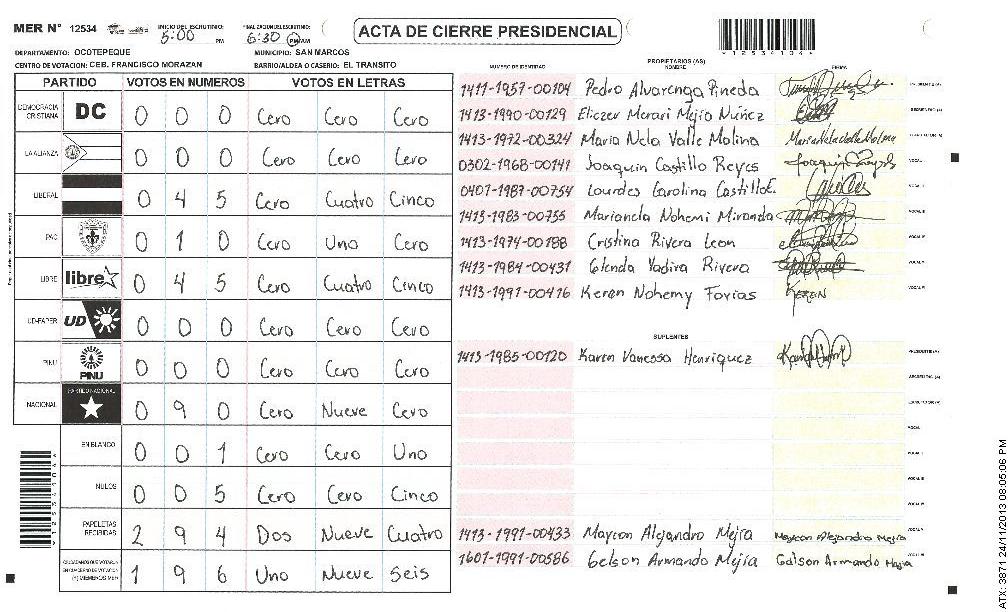 MER N° 12534
INICIO DEL ESCRUTINIO: 5:00 PM
FINALIZACION DEL ESCRUTINIO: 6:30 PM AM
ACTA DE CIERRE PRESIDENCIAL
* 1 2 5 3 4 1 0 4 *
DEPARTAMENTO: OCOTEPEQUE
MUNICIPIO: SAN MARCOS
CENTRO DE VOTACION: CEB. FRANCISCO MORAZAN
BARRIO/ALDEA O CASERIO: EL TRANSITO
PARTIDO VOTOS EN NUMEROS VOTOS EN LETRAS
DEMOCRACIA CRISTIANA DC 0 0 0 Cero Cero Cero
LA ALIANZA 0 0 0 Cero Cero Cero
LIBERAL 0 4 5 Cero Cuatro Cinco
PAC 0 1 0 Cero Uno Cero
LIBRE libre 0 4 5 Cero Cuatro Cinco
UD-FAPER UD 0 0 0 Cero Cero Cero
PINU PINU 0 0 0 Cero Cero Cero
NACIONAL PARTIDO NACIONAL 0 9 0 Cero Nueve Cero
EN BLANCO 0 0 1 Cero Cero Uno
NULOS 0 0 5 Cero Cero Cinco
PAPELETAS RECIBIDAS 2 9 4 Dos Nueve Cuatro
CIUDADANOS QUE VOTARON EN CUADERNO DE VOTACION (+) MIEMBROS MER 1 9 6 Uno Nueve Seis
NUMERO DE IDENTIDAD PROPIETARIOS (AS) NOMBRE FIRMA
1411-1957-00104 Pedro Alvarenga Pineda
1413-1990-00129 Eliezer Merari Mejia Nuñez
1413-1972-00324 Maria Nela Valle Molina Maria Nela Valle Molina
0302-1968-00141 Joaquin Castillo Reyes
0401-1987-00754 Lourdes Carolina Castillo E.
1413-1983-00755 Marianela Nohemi Miranda
1413-1974-00188 Cristina Rivera Leon
1413-1984-00431 Glenda Yadira Rivera
1413-1991-00416 Keren Nohemy Forias KEREN
SUPLENTES
1413-1985-00120 Karen Vanessa Henriquez
1413-1991-00433 Maycon Alejandro Mejia Maycon Alejandro Mejia
1601-1991-00586 Gelson Armando Mejía Gelson Armando Mejia
ATX: 3871 24/11/2013 08:05:06 PM